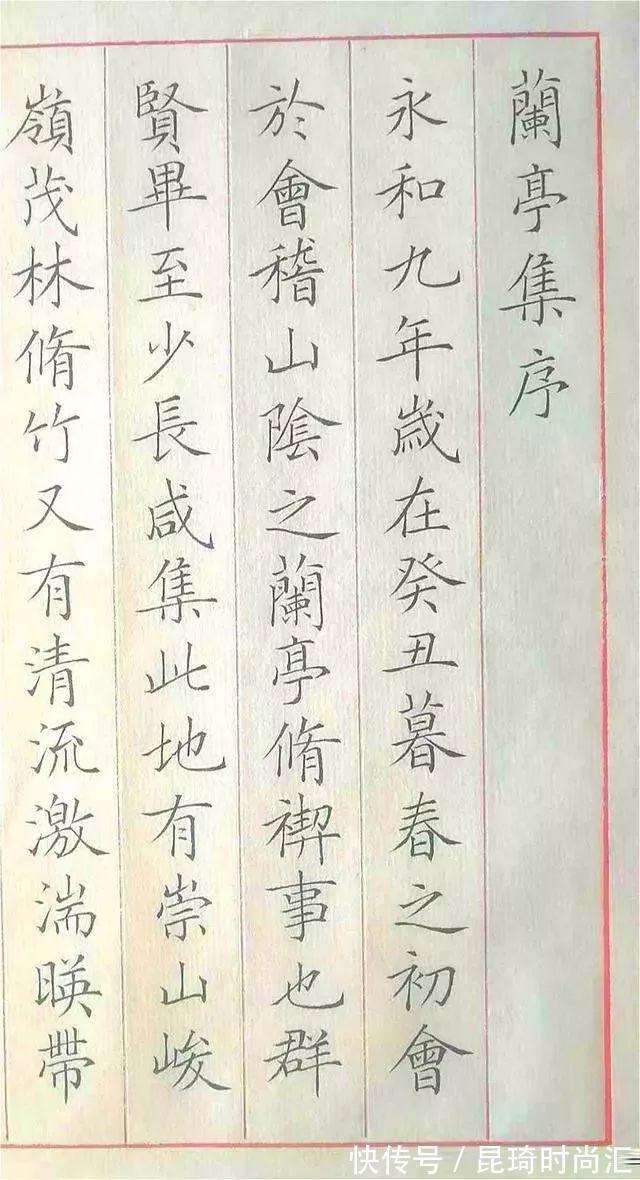 蘭亭集序
永和九年歲在癸丑暮春之初會
於會稽山陰之蘭亭脩禊事也群
賢畢至少長咸集此地有崇山峻
嶺茂林脩竹又有清流激湍暎帶
快传号/昆琦时尚汇